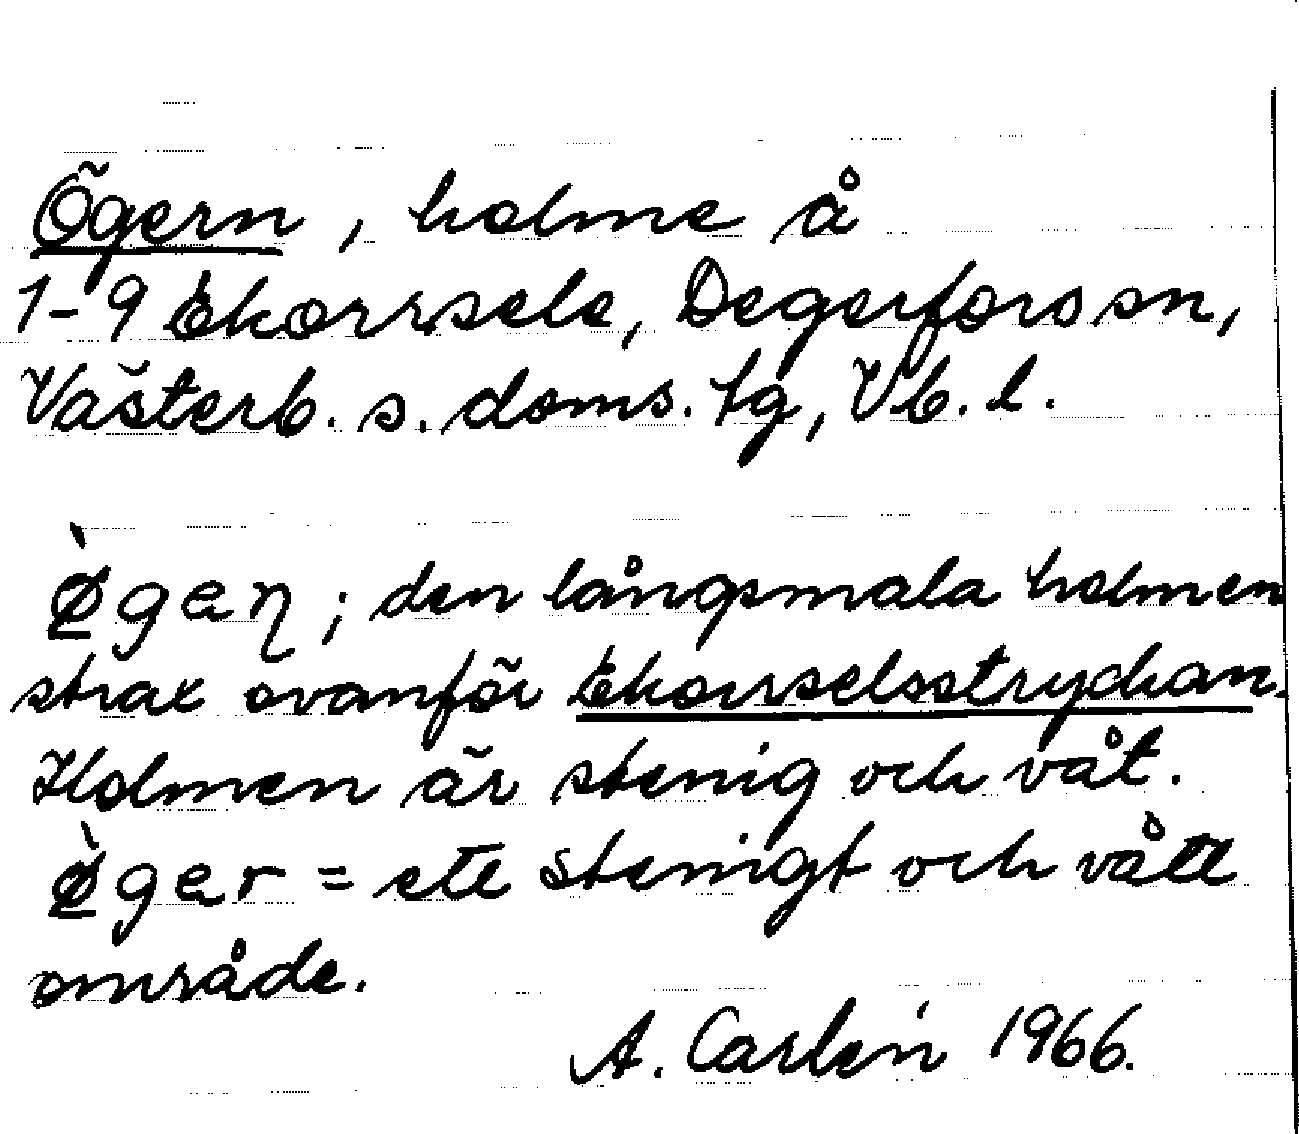 Ögern, holme å
1-9 Ekorrsele, Degerfors sn,
Västerb. s. doms. tg, Vb. l.
ø̀gaɳ; den långsmala holmen
strax ovanför Ekorrselsstryckan.
Holmen är stenig och våt.
ø̀gar = ett stenigt och vått
område.
A. Carlén 1966.